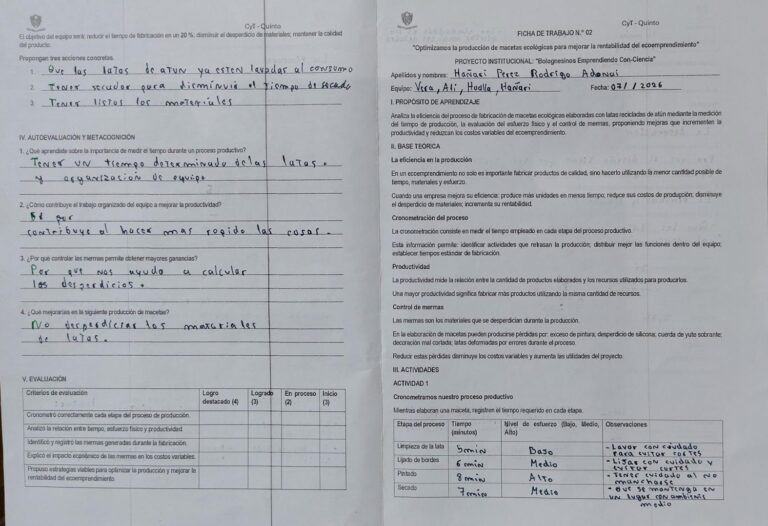 CyT - Quinto
El objetivo del equipo será: reducir el tiempo de fabricación en un 20 %; disminuir el desperdicio de materiales; mantener la calidad
del producto.
Propongan tres acciones concretas.
1. Que las latas de atun ya esten lavadas al consumo
2. Tener secador para disminuir el tiempo de secado
3. Tener listos los materiales
IV. AUTOEVALUACIÓN Y METACOGNICIÓN
1. ¿Qué aprendiste sobre la importancia de medir el tiempo durante un proceso productivo?
Tener un tiempo determinado de las latas.
y organización de equipo
2. ¿Cómo contribuye el trabajo organizado del equipo a mejorar la productividad?
por
contribuye al hacer mas rapido las cosas.
3. ¿Por qué controlar las mermas permite obtener mayores ganancias?
Por que nos ayuda a calcular
los desperdicios.
4. ¿Qué mejorarías en la siguiente producción de macetas?
No desperdiciar los materiales
de latas.
V. EVALUACIÓN
Criterios de evaluación Logro destacado (4) Logrado (3) En proceso (2) Inicio (3)
Cronometró correctamente cada etapa del proceso de producción.
Analizó la relación entre tiempo, esfuerzo físico y productividad.
Identificó y registró las mermas generadas durante la fabricación.
Explicó el impacto económico de las mermas en los costos variables.
Propuso estrategias viables para optimizar la producción y mejorar la
rentabilidad del ecoemprendimiento.
CyT - Quinto
FICHA DE TRABAJO N.° 02
"Optimizamos la producción de macetas ecológicas para mejorar la rentabilidad del ecoemprendimiento"
PROYECTO INSTITUCIONAL: "Bolognesinos Emprendiendo Con-Ciencia"
Apellidos y nombres: Hañari Perez Rodrigo Adonai
Equipo: Vera, Ali, Hualla, Hañari Fecha: 07/ / 2026
I. PROPÓSITO DE APRENDIZAJE
Analiza la eficiencia del proceso de fabricación de macetas ecológicas elaboradas con latas recicladas de atún mediante la medición
del tiempo de producción, la evaluación del esfuerzo físico y el control de mermas, proponiendo mejoras que incrementen la
productividad y reduzcan los costos variables del ecoemprendimiento.
II. BASE TEÓRICA
La eficiencia en la producción
En un ecoemprendimiento no solo es importante fabricar productos de calidad, sino hacerlo utilizando la menor cantidad posible de
tiempo, materiales y esfuerzo.
Cuando una empresa mejora su eficiencia: produce más unidades en menos tiempo, reduce sus costos de producción, disminuye
el desperdicio de materiales; incrementa su rentabilidad.
Cronometración del proceso
La cronometración consiste en medir el tiempo empleado en cada etapa del proceso productivo.
Esta información permite: identificar actividades que retrasan la producción; distribuir mejor las funciones dentro del equipo;
establecer tiempos estándar de fabricación.
Productividad
La productividad mide la relación entre la cantidad de productos elaborados y los recursos utilizados para producirlos.
Una mayor productividad significa fabricar más productos utilizando la misma cantidad de recursos.
Control de mermas
Las mermas son los materiales que se desperdician durante la producción.
En la elaboración de macetas pueden producirse pérdidas por: exceso de pintura; desperdicio de silicona; cuerda de yute sobrante;
decoración mal cortada; latas deformadas por errores durante el proceso.
Reducir estas pérdidas disminuye los costos variables y aumenta las utilidades del proyecto.
III. ACTIVIDADES
ACTIVIDAD 1
Cronometramos nuestro proceso productivo
Mientras elaboran una maceta, registren el tiempo requerido en cada etapa.
Etapa del proceso Tiempo (minutos) Nivel de esfuerzo (Bajo, Medio, Alto) Observaciones
Limpieza de la lata 5 min Bajo - Lavar con cuidado para evitar cortes
Lijado de bordes 6 min Medio - Lijar con cuidado y evitar cortes
Pintado 8 min Alto - Tener cuidado al no mancharse
Secado 7 min Medio - Que se mantenga en un lugar con ambiente medio